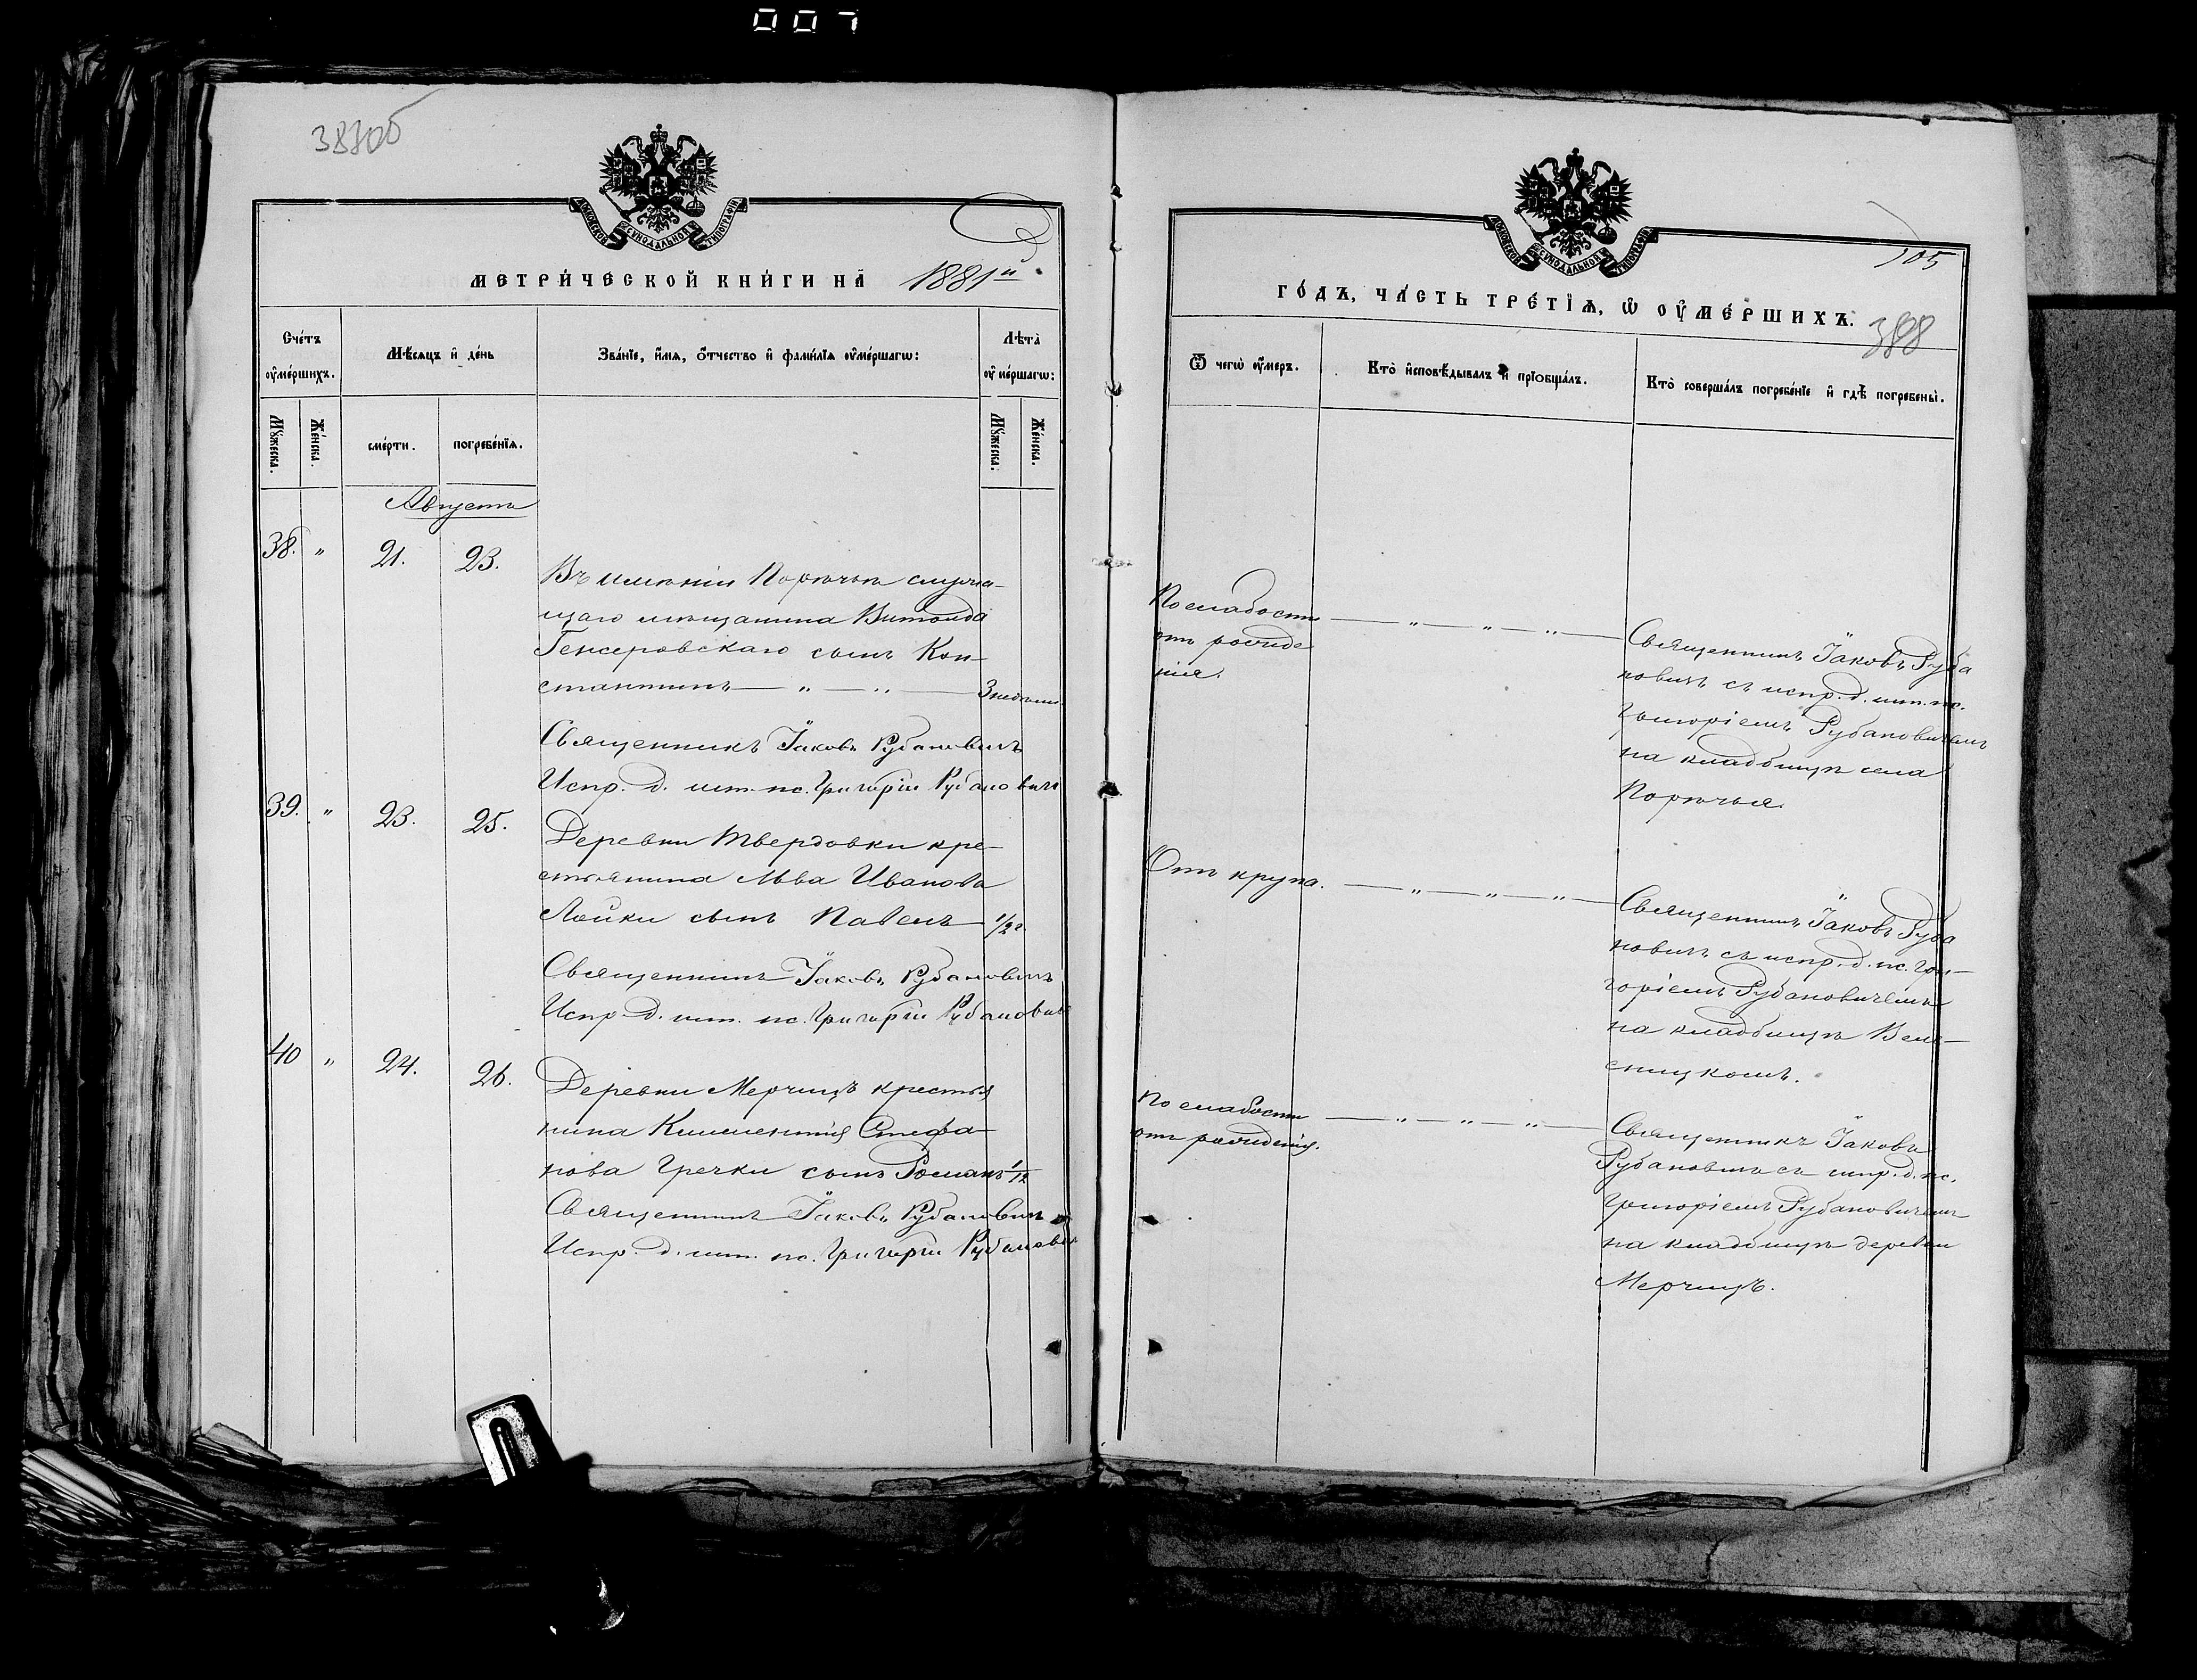 007
387об
МОСКОВСКОЙ СѴНОДАЛЬНОЙ ТИПОГРАФІИ
МЕТРИ́ЧЕСКОЙ КНИ́ГИ НА̀ 1881й
Сче́тъ оу҆ме́ршихъ.
Мѣ́сяцъ и҆ де́нь
Зва́нїе, и҆́мѧ, ѻ҆́тчество и҆ фами́лїѧ оу҆ме́ршагѡ:
Лѣ́та оу҆ме́ршагѡ:
Мꙋ́жеска.
Же́нска.
сме́рти.
погребе́нїѧ.
Мꙋ́жеска.
Же́нска.
Августъ
38. " 21. 23.
Въ имѣніи Порѣчьѣ служа-
щаго мѣщанина Витольда
Генсеровскаго сынъ Кон-
стантинъ — " — " — 3 недѣли
Священникъ Іаковъ Рубановичъ
Испр. д. шт. пс. Григорій Рубановичъ
39. " 23. 25.
Деревни Твердовки кре-
стьянина Льва Иванова
Лойки сынъ Павелъ — 1/2 г.
Священникъ Іаковъ Рубановичъ
Испр. д. шт. пс. Григорій Рубановичъ
40 " 24. 26.
Деревни Мерчицъ крестья
нина Климентія Стефа-
нова Гречки сынъ Романъ 1/12
Священникъ Іаковъ Рубановичъ
Испр. д. шт. пс. Григорій Рубановичъ
МОСКОВСКОЙ СѴНОДАЛЬНОЙ ТИПОГРАФІИ
105
ГО́ДЪ, ЧА́СТЬ ТРЕ́ТЇѦ, Ѡ҆ ОУ҆МЕ́РШИХЪ.
388
Ѿ чегѡ̀ оу҆́меръ.
Кто̀ и҆сповѣ́дывалъ и҆ прїобща́лъ.
Кто̀ соверша́лъ погребе́нїе и҆ гдѣ̀ погребены̀.
По слабости
отъ рожде
нія.
— " — " — " —
Священникъ Іаковъ Руба
новичъ съ испр. д. шт. пс.
Григоріемъ Рубановичемъ
на кладбищѣ села
Порѣчья.
Отъ крупа.
— " — " — " —
Священникъ Іаковъ Руба
новичъ съ испр. д. пс. Гри-
горіемъ Рубановичемъ
на кладбищѣ Веле-
сницкомъ.
По слабости
отъ рожденія.
— " — " — " —
Священникъ Іаковъ
Рубановичъ съ испр. д. пс.
Григоріемъ Рубановичемъ
на кладбищѣ деревни
Мерчицъ.